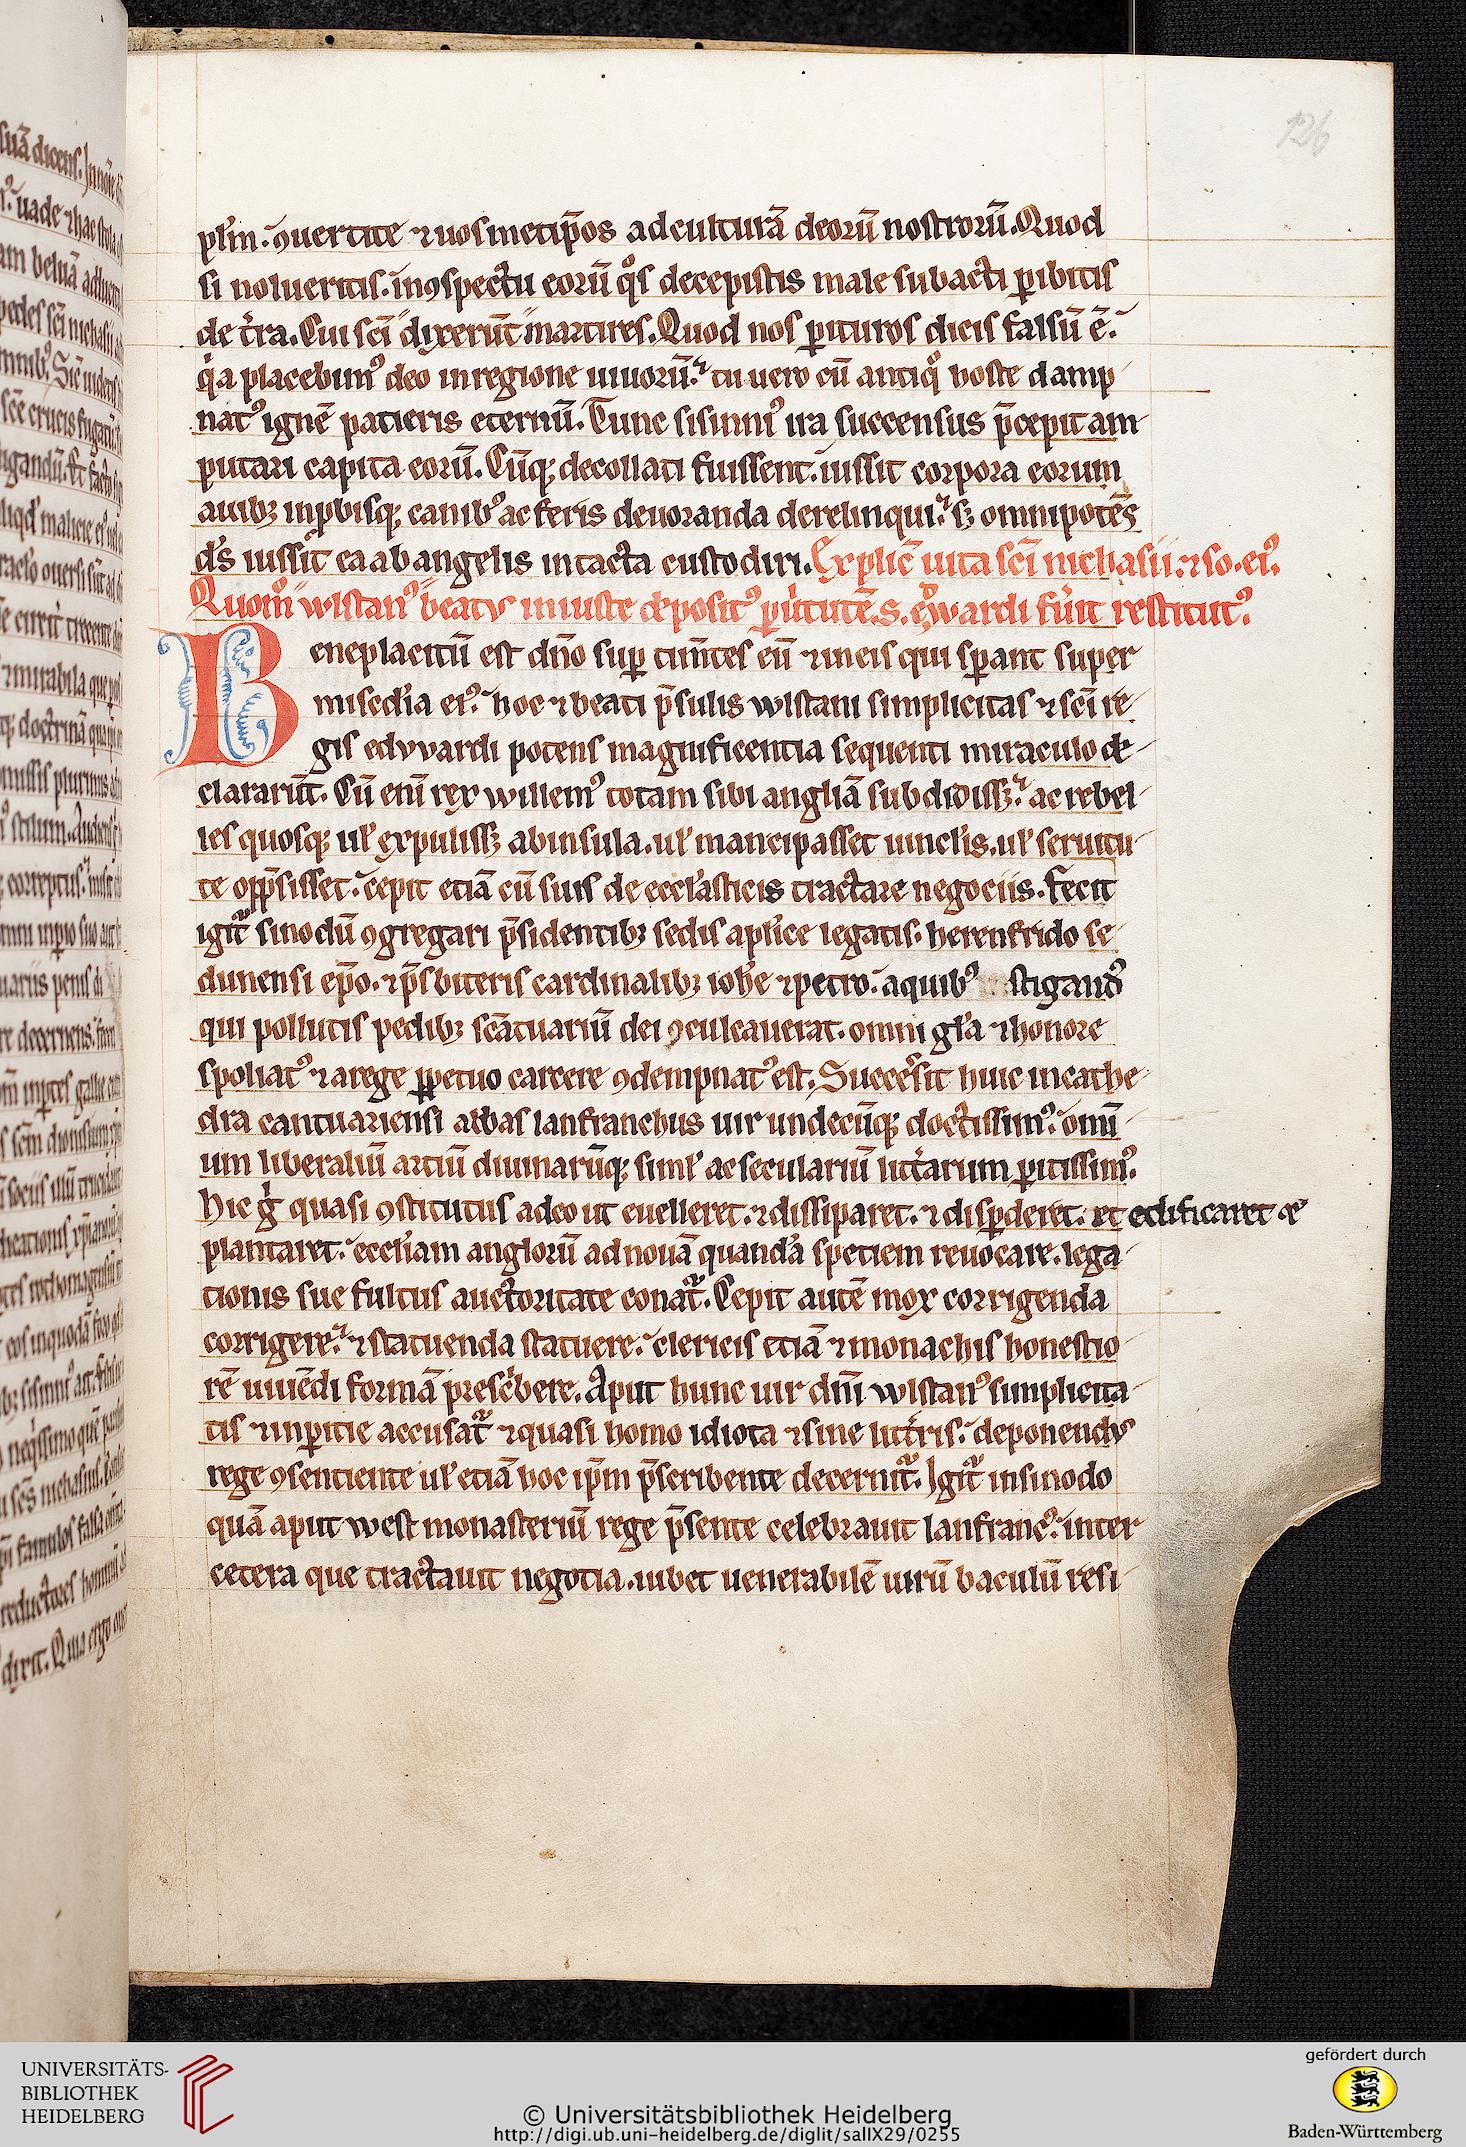 126
pl̄m. ꝯuertite ⁊ uosmetip̄os ad culturā deorū nostrorū. Quod
si nolueritis. in ꝯspectu eorū qͦs decepistis male subacti ꝑibitis
de t̓ra. Cui sc̄i dixerūt martires. Quod nos ꝑituros dicis falsū ē.
qͥa placebimꝰ deo in regione uiuorū. tu uero cū antiqͦ hoste damp
natꝰ ignē patieris eternū. Tunc sisinniꝰ ira succensus p̄cepit am
putari capita eorū. Cūqꝫ decollati fuissent. iussit corpora eorum
auibꝫ inpbisqꝫ canibꝰ ac feris deuoranda derelinqui. sꝫ omnipotēs
d̄s iussit ea ab angelis intacta custodiri. Explic̄ uita sc̄i nichasii ⁊ so. eiꝰ.
Quom̄o wlstanꝰ beatus iniuste depositꝰ ꝑ uͥtutē .S. edwardi fuͥit restitutꝰ.
Beneplacitū est dn̄o suꝑ tim̄tes eū ⁊ in eis qui sꝑant super
mis̄cdia eiꝰ. hoc ⁊ beati p̄sulis wlstani simplicitas ⁊ sc̄i re
gis edvvardi potens magnificentia sequenti miraculo de
clararūt. Cū enī rex willemꝰ totam sibi angliā subdidissꝫ. ac rebel
les quosqꝫ ul̓ expulissꝫ ab insula. ul̓ mancipasset uinclis. ul̓ seruitu
te opp̄sisset. cepit etiā cū suis de eccl̓asticis tractare negociis. Fecit
igit᷑ sinodū ꝯgregari p̄sidentibꝫ sedis apl̓ice legatis. herenfrido se
dunensi ep̄o. ⁊ p̄sbiteris cardinalibꝫ ioh̓e ⁊ petro. a quibꝰ stigandꝰ
qui pollutis pedibꝫ sc̄atuariū dei ꝯculcauerat. omni gl̓a ⁊ honore
spoliatꝰ ⁊ a rege ꝑpetuo carcere ꝯdempnatꝰ est. Succes̓sit huic in cathe
dra cantuariensi abbas lanfranchus uir undecūqꝫ doctissimꝰ. omī
um liberaliū artiū diuinarūqꝫ siml̓ ac seculariū litt̓arum ꝑitissimꝰ.
Hic gͥ quasi ꝯstitutus a deo ut euelleret. ⁊ dissiparet. ⁊ disꝑderet. et edificaret ⁊
plantaret. eccl̓iam anglorū ad nouā quandā spetiem reuocare. lega
tionis sue fultus auctoritate conat᷑. Cepit autē mox corrigenda
corrigere. ⁊ statuenda statuere. clericis etiā ⁊ monachis honestio
rē uiuēdi formā presc̓bere. Aput hunc uir dn̄i wlstanꝰ simplicita
tis ⁊ inꝑitie accusat᷑ ⁊ quasi homo idiota ⁊ sine litt̓ris. deponendus
rege ꝯsentiente ul̓ etiā hoc ip̄m p̄scribente decernit᷑. Igit᷑ in sinodo
quā aput west monasteriū rege p̄sente celebrauit lanfrancꝰ. inter
cetera que tractauit negotia. iubet uenerabilē uirū baculū resi
UNIVERSITÄTS-
BIBLIOTHEK
HEIDELBERG
© Universitätsbibliothek Heidelberg
http://digi.ub.uni-heidelberg.de/diglit/salIX29/0255
gefördert durch
Baden-Württemberg